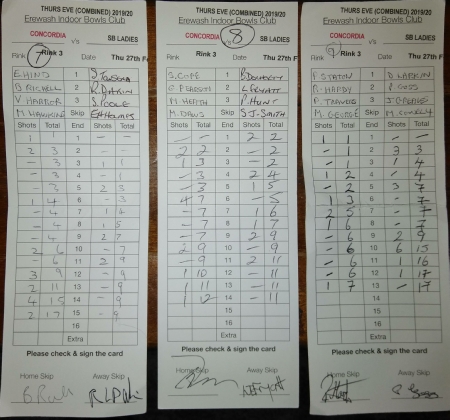 THURS EVE (COMBINED) 2019/20
Erewash Indoor Bowls Club
CONCORDIA v's SB LADIES
Rink 7 Rink 3 Date Thu 27th F
E. HIND 1
2
V HARPER 3 S. POOLE
M. HAWKINS Skip
Shots Total End Shots Total
1 1 1 - -
2 3 2 - -
- 3 3 1 1
- 3 4 - 1
- 3 5 2 3
1 4 6 - 3
- 4 7 1 4
- 4 8 1 5
- 4 9 2 7
2 6 10 - 7
- 6 11 2 9
3 9 12 - 9
2 11 13 - 9
4 15 14 - 9
2 17 15 - 9
16
Extra
Please check & sign the card
Home Skip Away Skip
THURS EVE (COMBINED) 2019/20
Erewash Indoor Bowls Club
CONCORDIA v's SB LADIES
Rink 8 Rink 3 Date Thu 27th F
S. COPE 1
2
M. HEATH 3 P. HUNT
M. DAWS Skip S.J. SMITH
Shots Total End Shots Total
- - 1 2 2
2 2 2 - 2
1 3 3 - 2
- 3 4 2 4
- 3 5 1 5
4 7 6 - 5
- 7 7 1 6
- 7 8 1 7
- 7 9 2 9
2 9 10 - 9
- 9 11 2 11
1 10 12 - 11
1 11 13 - 11
1 12 14 - 11
15
16
Extra
Please check & sign the card
Home Skip Away Skip
THURS EVE (COMBINED) 2019/20
Erewash Indoor Bowls Club
CONCORDIA v's SB LADIES
Rink 9 Rink 3 Date Thu 27th F
P. STATON 1 D LARKIN
P. HANDY 2
P. TRAVERS 3
M. GEORGE Skip
Shots Total End Shots Total
1 1 1 - -
- 1 2 3 3
- 1 3 1 4
1 2 4 - 4
- 2 5 3 7
1 3 6 - 7
2 5 7 - 7
1 6 8 - 7
- 6 9 2 9
- 6 10 6 15
- 6 11 1 16
- 6 12 1 17
1 7 13 - 17
14
15
16
Extra
Please check & sign the card
Home Skip Away Skip